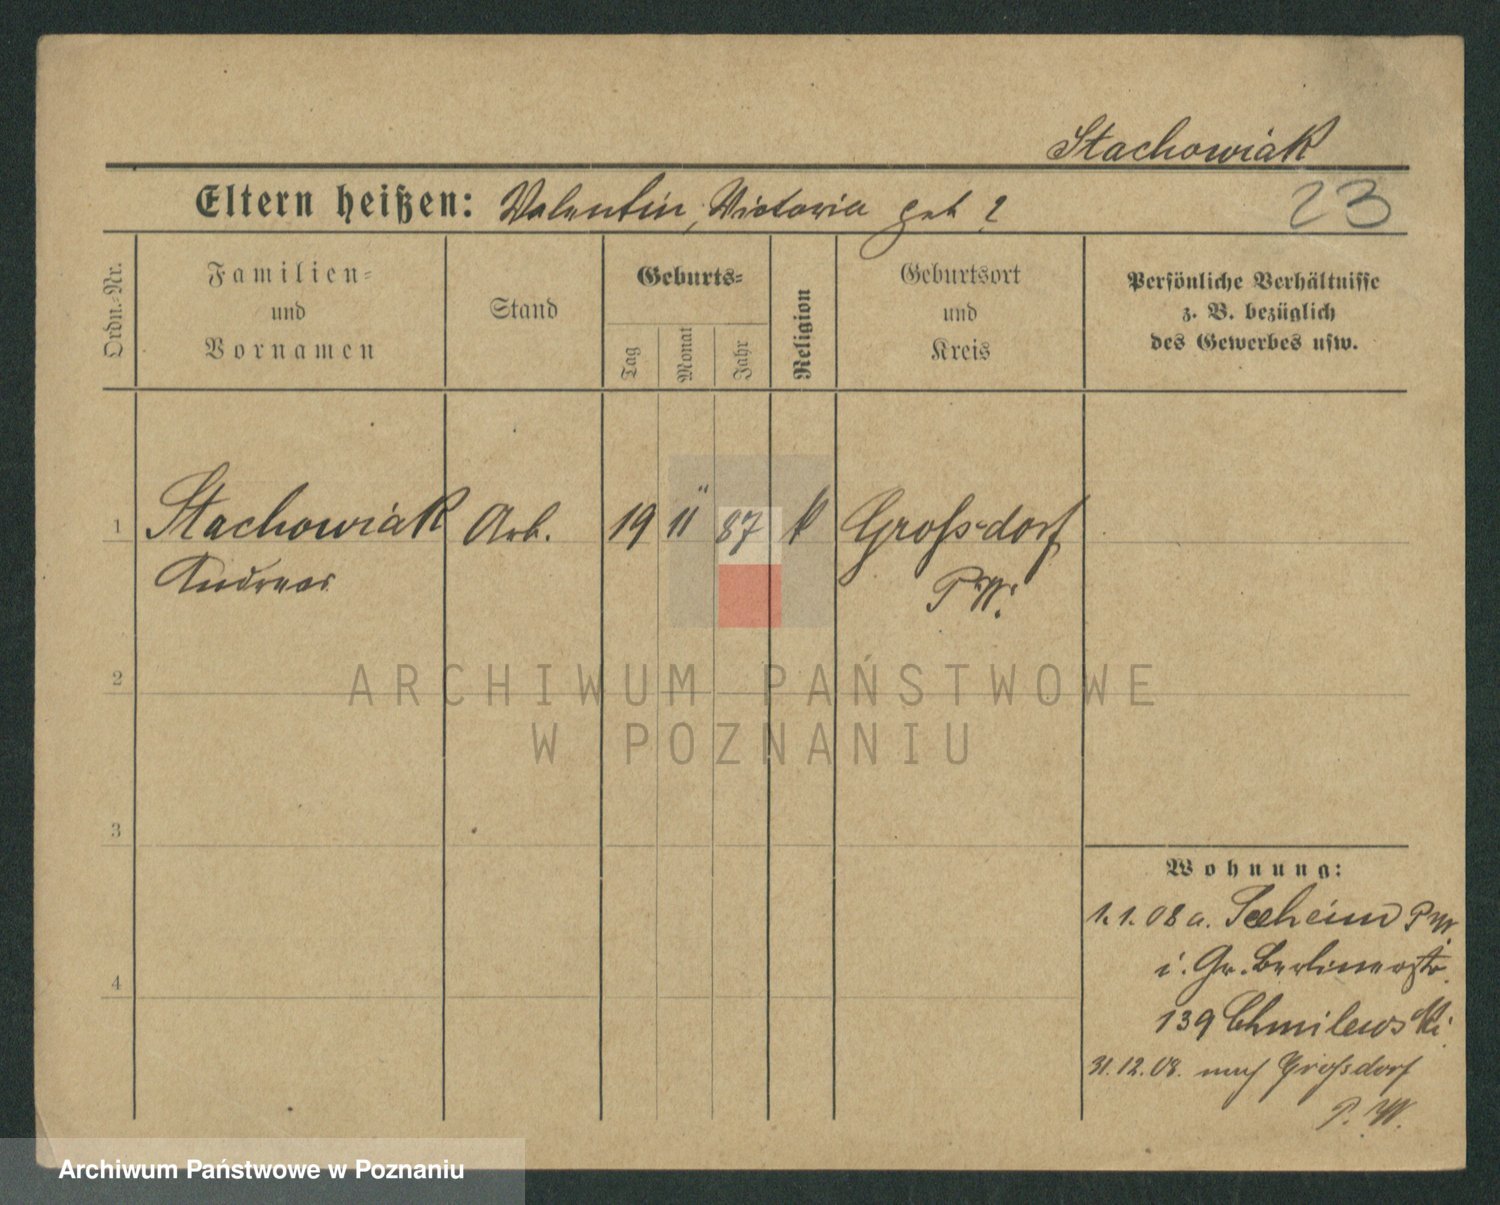 Stachowiak
Eltern heißen: Valentin, Victoria geb ?
23
Ordn.-Nr.
Familien-
und
Vornamen
Stand
Geburts-
Tag
Monat
Jahr
Religion
Geburtsort
und
Kreis
Persönliche Verhältnisse
z. B. bezüglich
des Gewerbes usw.
1 Stachowiak Arb. 19 11 87 k Grofsdorf
Andreas P.W.
2
ARCHIWUM PAŃSTWOWE
W POZNANIU
3
Wohnung:
1.1.08 a. Seeheim P.W.
i. Gr. Berlinerstr.
4
139 Chmilewski
31.12.08. nach Grofsdorf
P. W.
Archiwum Państwowe w Poznaniu